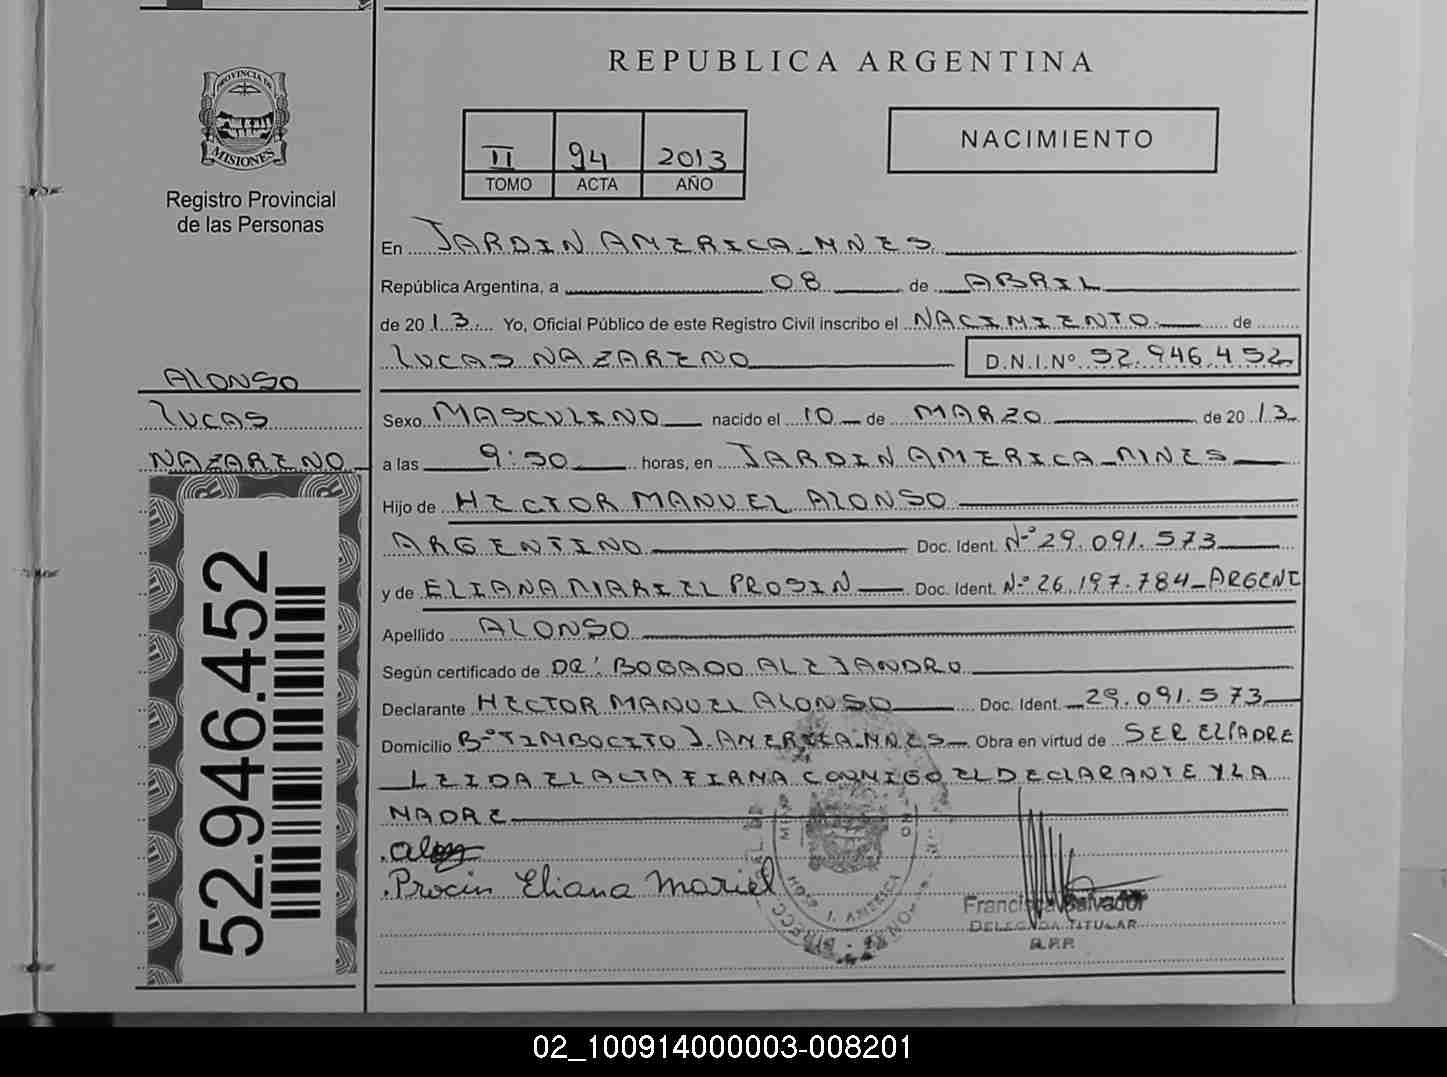 REPUBLICA ARGENTINA
PROVINCIA DE
MISIONES
Registro Provincial
de las Personas
II 94 2013
TOMO ACTA AÑO
NACIMIENTO
En JARDIN AMERICA - MNES
República Argentina, a 08 de ABRIL
de 2013 Yo, Oficial Público de este Registro Civil inscribo el NACIMIENTO de
LUCAS NAZARENO D.N.I. Nº 52.946.452
ALONSO
LUCAS
NAZARENO
Sexo MASCULINO nacido el 10 de MARZO de 2013
a las 9:50 horas, en JARDIN AMERICA - MNES
Hijo de HECTOR MANUEL ALONSO
ARGENTINO Doc. Ident. Nº 29.091.573
y de ELIANA MARIEL PROSIN Doc. Ident. Nº 26.197.784 - ARGENT
Apellido ALONSO
Según certificado de DR: BOGADO ALEJANDRO
Declarante HECTOR MANUEL ALONSO Doc. Ident. 29.091.573
Domicilio Bº TIMBOCITO J. AMERICA - MNES Obra en virtud de SER EL PADRE
LEIDA EL ACTA FIRMA CONMIGO EL DECLARANTE Y LA
MADRE
Procin Eliana Mariel
J. AMERICA
Francisca Salvador
DELEGADA TITULAR
R.P.P.
52.946.452
02_100914000003-008201